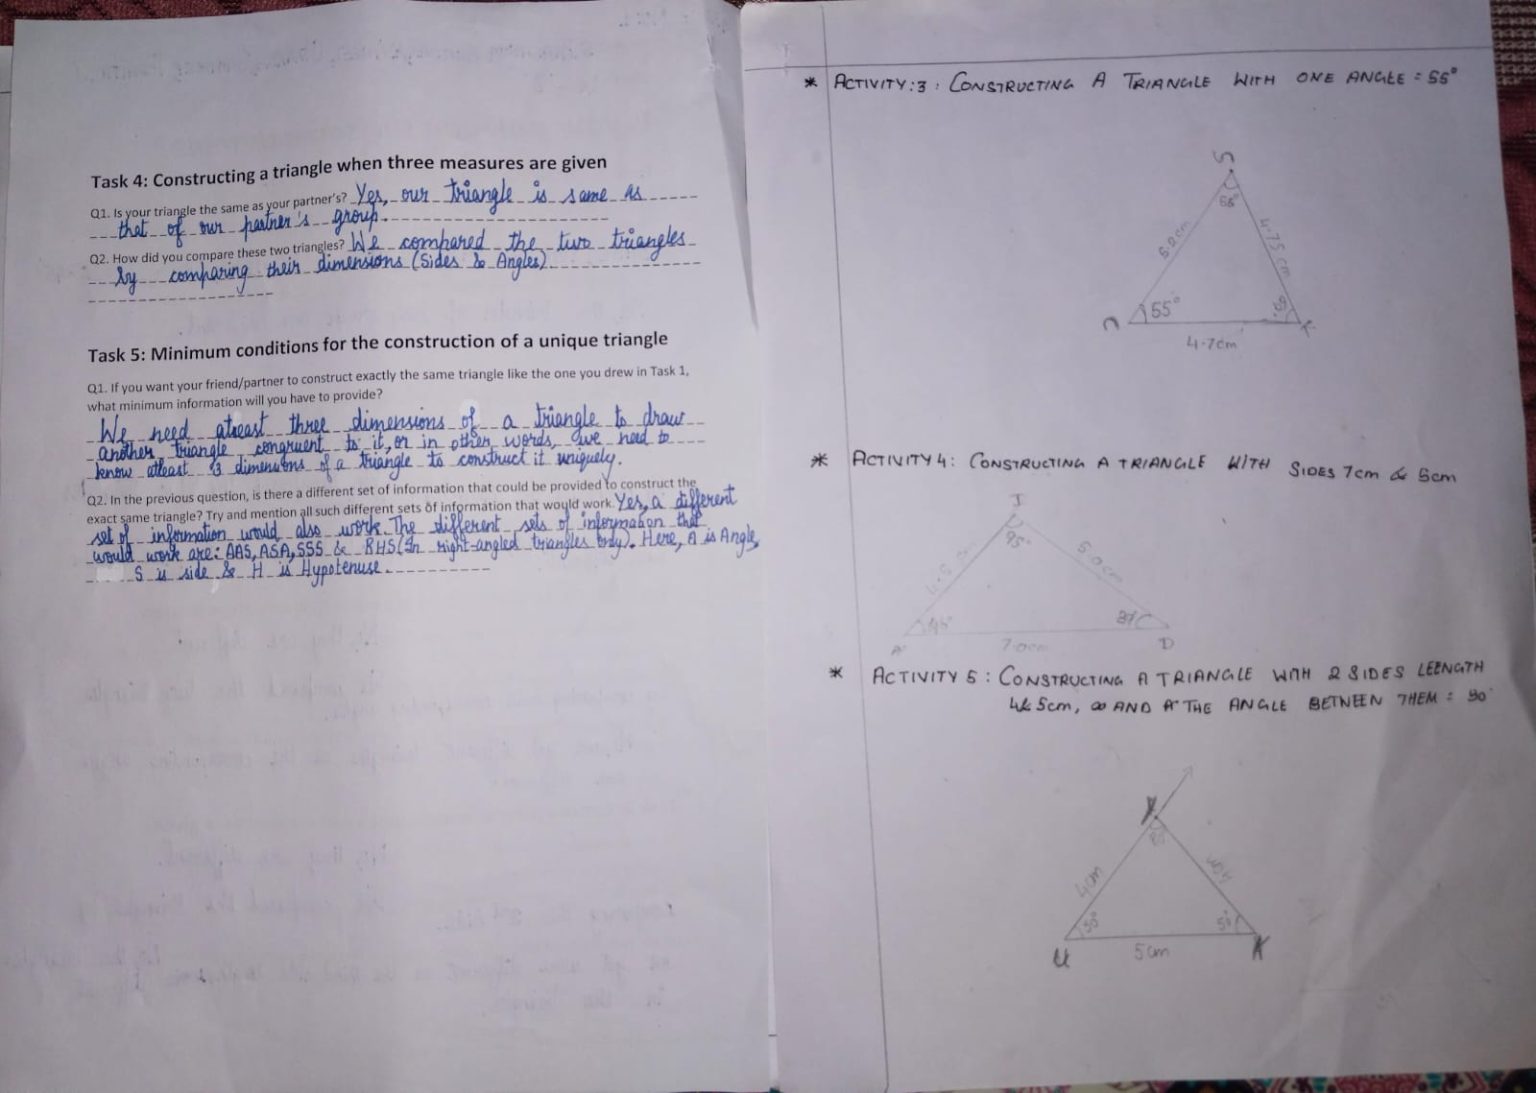 Task 4: Constructing a triangle when three measures are given
Q1. Is your triangle the same as your partner's? Yes, our triangle is same as
that of our partner's group.
Q2. How did you compare these two triangles? We compared the two triangles
by comparing their dimensions (Sides & Angles)
Task 5: Minimum conditions for the construction of a unique triangle
Q1. If you want your friend/partner to construct exactly the same triangle like the one you drew in Task 1,
what minimum information will you have to provide?
We need atleast three dimensions of a triangle to draw
another triangle congruent to it, or in other words, we need to
know atleast 3 dimensions of a triangle to construct it uniquely.
Q2. In the previous question, is there a different set of information that could be provided to construct the
exact same triangle? Try and mention all such different sets of information that would work. Yes, a different
set of information would also work. The different sets of information that
would work are: AAS, ASA, SSS & RHS (In right-angled triangles only). Here, A is Angle,
S is side & H is Hypotenuse.
* ACTIVITY:3: CONSTRUCTING A TRIANGLE WITH ONE ANGLE = 55°
S
4.75 cm
55°
K
4.7cm
* ACTIVITY 4: CONSTRUCTING A TRIANGLE WITH SIDES 7cm & 5cm
I
95°
5.0cm
48°
37
A
7.0cm
D
* ACTIVITY 5: CONSTRUCTING A TRIANGLE WITH 2 SIDES LEENGTH
4& 5cm, AND THE ANGLE BETWEEN THEM = 50°
4cm
50°
U
5cm
K